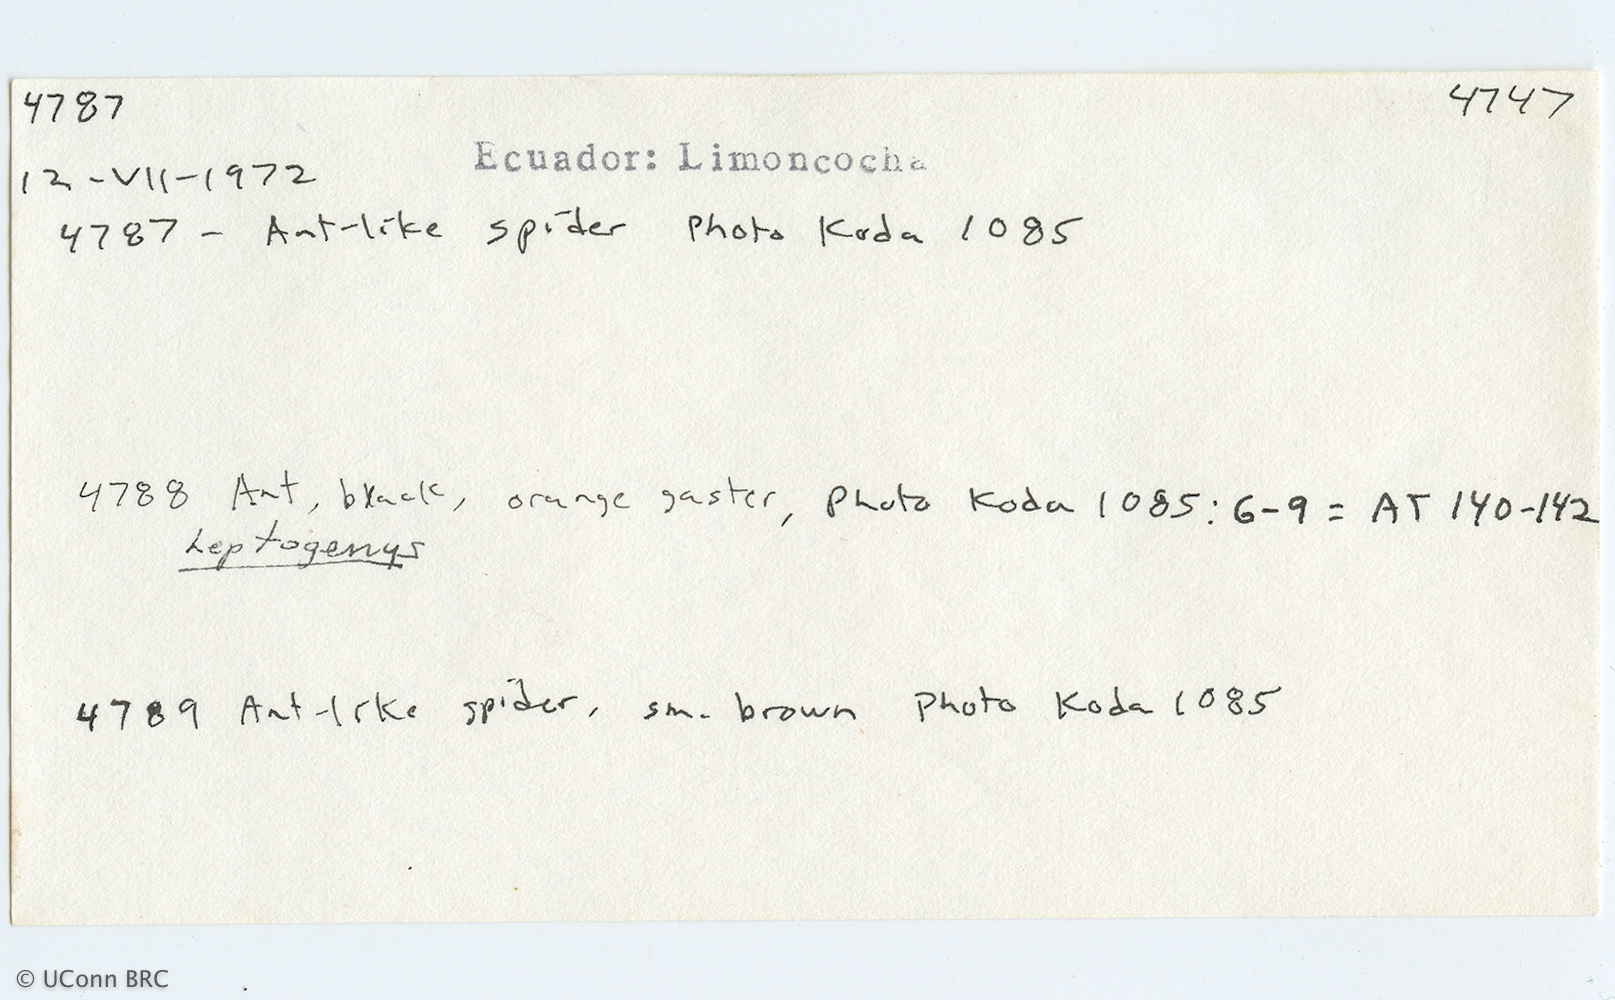 4787
4747
Ecuador: Limoncocha
12-VII-1972
4787 - Ant-like spider Photo Koda 1085
4788 Ant, black, orange gaster, Photo Koda 1085: 6-9 = AT 140-142
Leptogenys
4789 Ant-like spider, sm. brown Photo Koda 1085
© UConn BRC